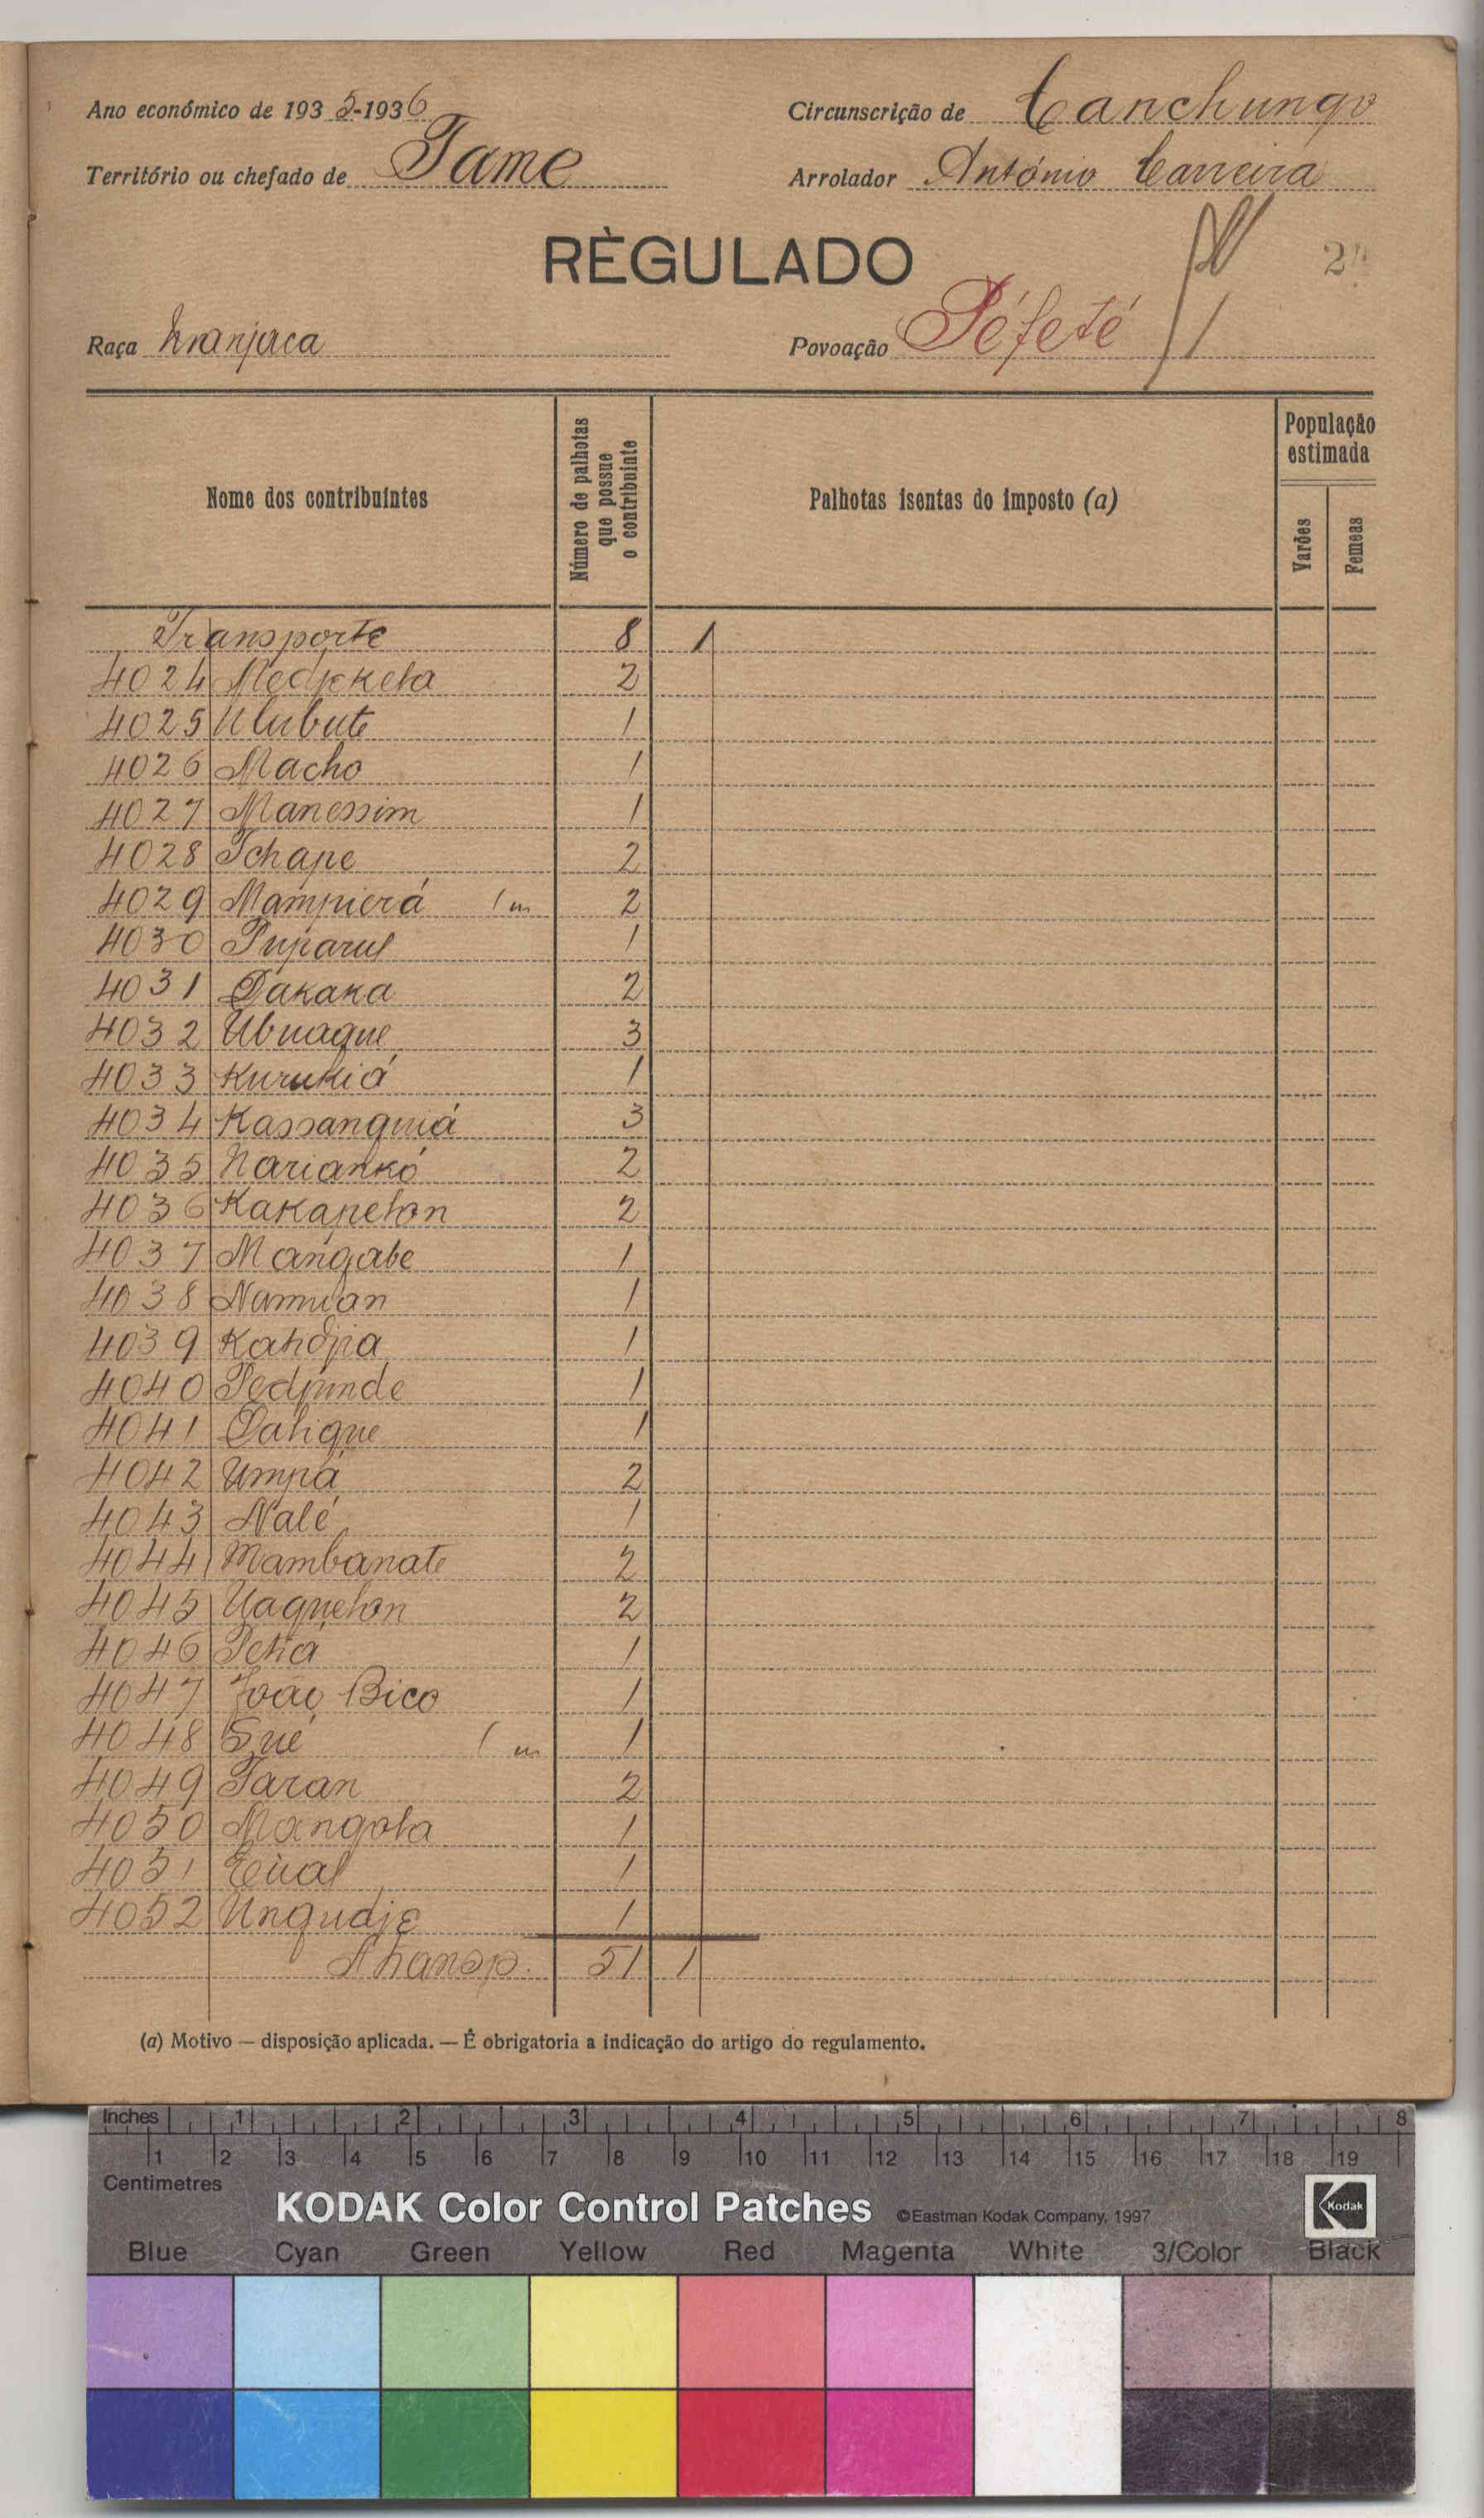 Ano económico de 1935-1936
Circunscrição de Canchungo
Território ou chefado de Tame
Arrolador António Carreira
RÈGULADO
Raça Manjaca
Povoação Péfeté
Nome dos contribuintes
Número de palhotas que possue o contribuinte
Palhotas isentas do imposto (a)
População estimada
Varões
Femeas
Transporte 8 1
4024 2
4025 Ulubute 1
4026 Macho 1
4027 Manessim 1
4028 Tchape 2
4029 Mampierá 1 m 2
4030 Puparul 1
4031 Dakaka 2
4032 Ubuaque 3
4033 Kurukiá 1
4034 Kassanguiá 3
4035 Nariankó 2
4036 Kakapelon 2
4037 Mangabe 1
4038 Namuian 1
4039 1
4040 1
4041 1
4042 Umpá 2
4043 Nalé 1
4044 Mambanate 2
4045 Uaquelon 2
4046 1
4047 João Bico 1
4048 Sué 1 m 1
4049 Taran 2
4050 Mangola 1
4051 1
4052 Ungudje 1
51 1
(a) Motivo — disposição aplicada. — É obrigatoria a indicação do artigo do regulamento.
Inches 1 2 3 4 5 6 7 8
1 2 3 4 5 6 7 8 9 10 11 12 13 14 15 16 17 18 19
Centimetres
KODAK Color Control Patches ©Eastman Kodak Company, 1997 Kodak
Blue Cyan Green Yellow Red Magenta White 3/Color Black